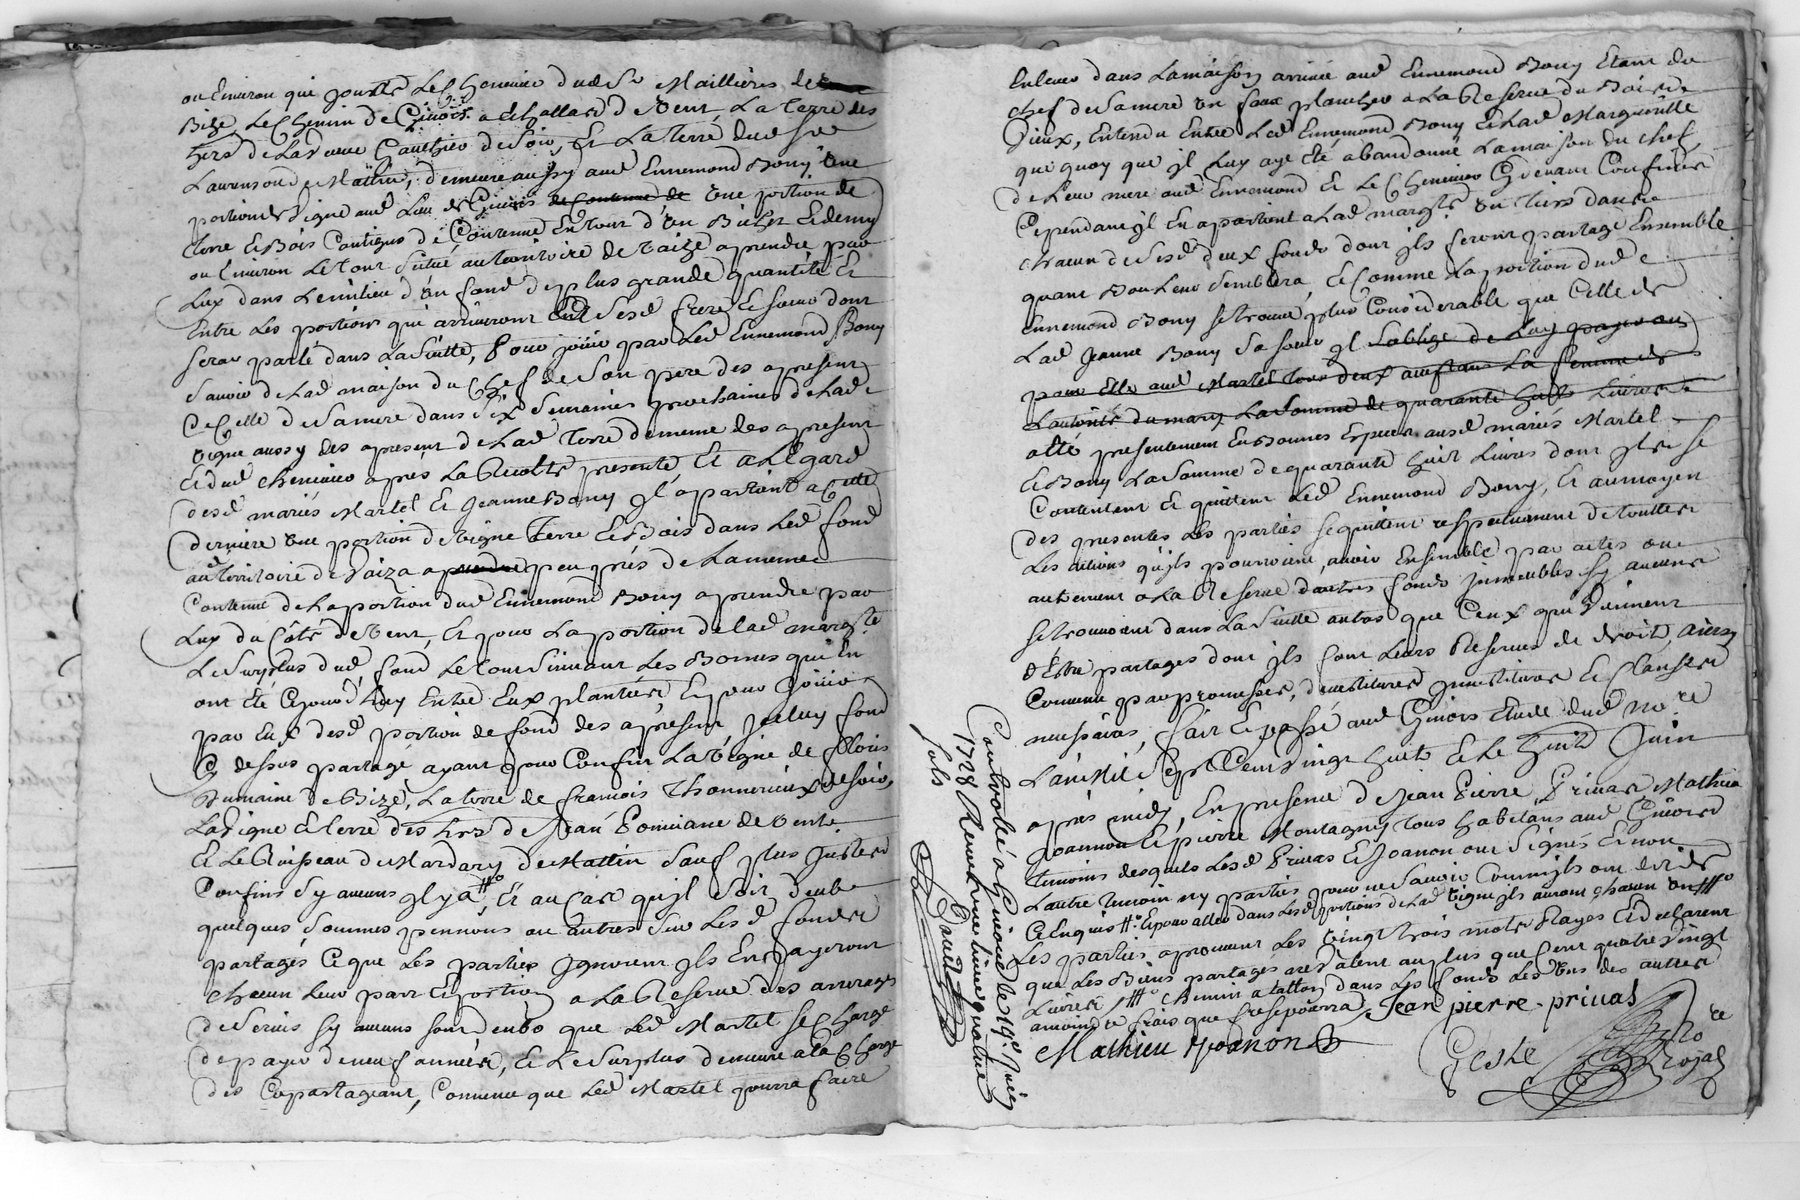 ou Environ qui jouxte Le Chenevier dud Sr Maillières de
Bize, Le Chemin de Givors a Echallard de vent, La Terre des
hers de La veuve Gauthier de soir, Et La Terre dud Sr
Laurenson de Matin, demeure aussy aud Ennemond Bony Une
portion de vigne aud Lieu de Givors de Contenue de Une portion de
terre Et Bois Contigus de Contenue En tout d'Un Bichet Et demy
ou Environ Le tout situé au territoire de Vaize a prendre par
Luy dans Le milieu d'Un fond de plus grande quantité Et
Entre Les portions qui arriveront a sesd frere Et soeur dont
sera parlé dans La suitte, Pour jouir par Led Ennemond Bony
savoir de Lad maison du Chef de son pere des apresent
De Celle de sa mere dans six semaines prochaines de Lade
vigne aussy des apresent de Lad terre de meme des apresent
Et dud chenevier apres La Recolte presente Et a L'Egard
desd mariés Martel Et Jeanne Bony Il apartient a Cette
derniere Une portion de vigne Terre Et Bois dans Led fond
aud territoire de Vaiza a prendre peu près de La meme
Contenue de La portion dud Ennemond Bony a prendre par
Luy du Côté de vent, Et pour La portion de lad margte
Le surplus dud fond Le tout suivant Les Bornes qui En
ont été Cejourd'huy Entre Eux plantées Et pour jouir
par Eux desd portion de fond des apresent jceluy fond
Cy dessus partagé ayant pour Confin La vigne de
Dumaine de Bize, La terre de francois Thonnerieux de soir,
La vigne Et terre des hers de Jean Ponciane de vent
Et Le Ruisseau de Mardary de Mattin sauf plus justes
Confins sy aucuns Il y a Et au Cas qu'il soit deub
quelques sommes pennons ou autres sur Lesd fonds
partagés Ce que Les parties Ignorent Ils En payeront
chacun Leur part Et portion a La Reserve des arrerages
de servis sy aucuns sont deubs que Led Martel se charge
de payer de neuf années, Et Le surplus demeure a la charge
des Copartageant, Convenu que Led Martel pourra faire
Enlever dans La maison arrivée aud Ennemond Bony Etant du
chef de sa mere Un faux plancher a La Reserve du Bois de
vieux, Entendu Entre Led Ennemond Bony Et Lad Marguerite
que quoy que Il Luy aye été abandonné La maison du chef
de Leur mere aud Ennemond Et Le Chenevier Cy devant Confinés
Cependant Il En apartient a Lad margte Un tiers dans
chacun de sesd deux fonds dont Ils feront partage Ensemble
quant Bon Leur semblera, Et Comme La portion dud
Ennemond Bony se trouve plus Considerable que Celle de
Lad Jeanne Bony sa soeur Il s'oblige de Luy payer ou
pour Elle aud Martel tous deux aussitans La femme de
L'autorité du mary La somme de quarante huit Livres
a été presentement En Bonnes Especes ausd mariés Martel
Et Bony La somme de quarante huit Livres dont Ils se
Contentent Et quittent Led Ennemond Bony, Et au moyen
des presentes Les parties se quittent respectivement de touttes
Les actions qu'ils pourroient avoir Ensemble par actes ou
autrement a La Reserve d'autres fonds Immeubles sy aucuns
se trouvoient dans La suitte autres que Ceux qui viennent
d'Estre partagés dont Ils font Leurs Reserves de droit, ainsy
Convenu par promesses, devestitures Investitures Et Clauses
necessaires, fait Et passé aud Givors Etude dud nore
L'an Mil sept Cent vingt huit Et Le huit Juin
après midy, En presence de Jean Pierre Privas Mathieu
Joannon Et pierre Montagny tous habitans aud Givors
temoins desquels Lesd Privas Et Joanon ont signés Et non
L'autre temoin ny parties pour ne savoir Comm'ils ont dit de
Ce Enquis Et pour aller dans Lesd portions de Lad vigne Ils auront chacun Un
Les parties aprouvent Les vingt trois mots Rayés Et declarent
que Les Biens partagés ne valent au plus que Cent quatre vingt
Livres Chemin a tallon dans Les fonds Les Uns des autres
a moindre frais que fre se pourra Jean pierre privas
Mathieu Joanon
Geste
nore
royal
Controllé a Givors le 19e Juin
1728 Receu trois livres quatre
sols